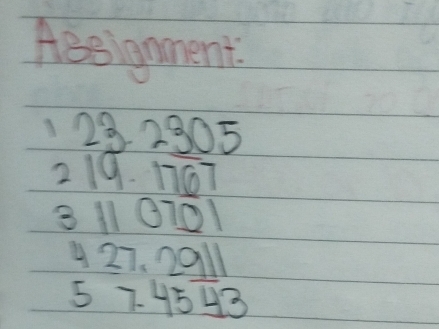 Assignment:
1 23.2305
2 19.1767
3 11 0701
4 27.2911
5 7.4543